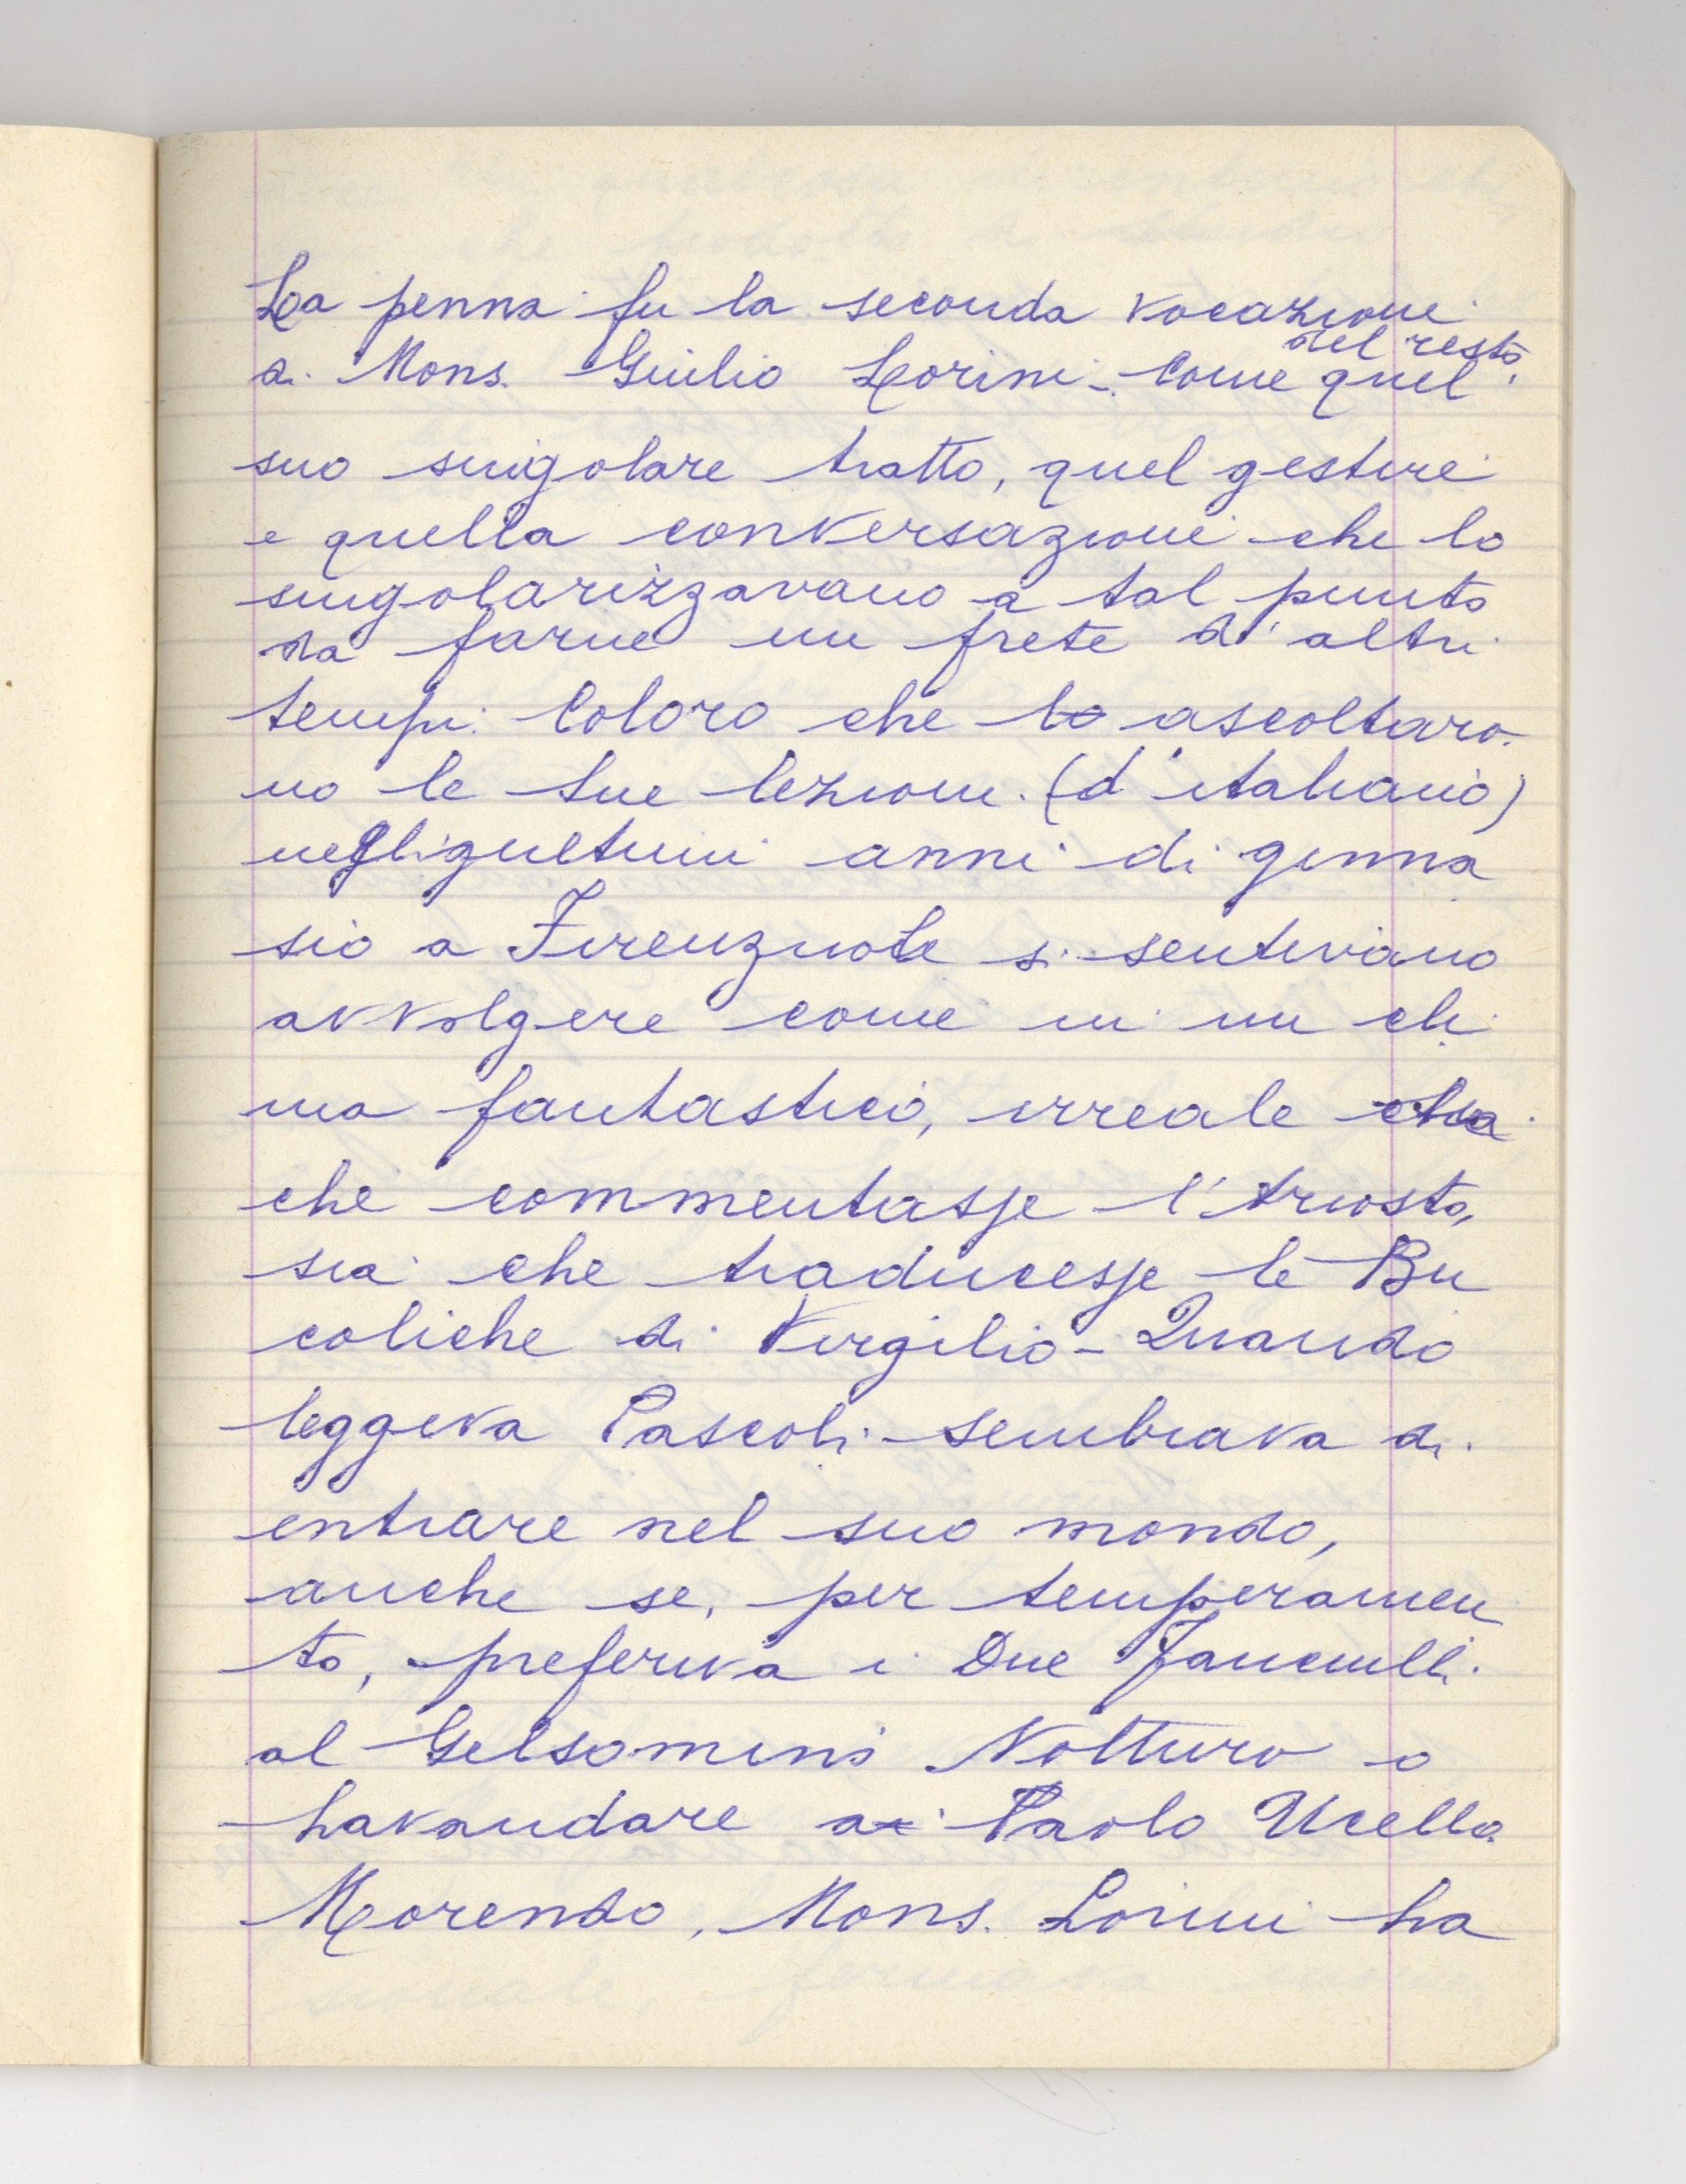 La penna fu la seconda vocazione
di Mons. Giulio Lorini - Come del resto, quel
suo singolare tratto, quel gestire
e quella conversazione che lo
singolarizzavano a tal punto
da farne un prete d'altri
tempi. Coloro che lo ascoltaro-
no le sue lezioni (d'italiano)
negli ultimi anni di ginna
sio a Firenzuola si sentivano
avvolgere come in un cli
ma fantastico, irreale sia
che commentasse l'Ariosto,
sia che traducesse le Bu
coliche di Virgilio - Quando
leggeva Pascoli sembrava di
entrare nel suo mondo,
anche se, per temperamen
to, preferiva i Due Fanciulli
al Gelsomino Notturno o
Lavandare a Paolo Ucello.
Morendo, Mons. Lorini ha